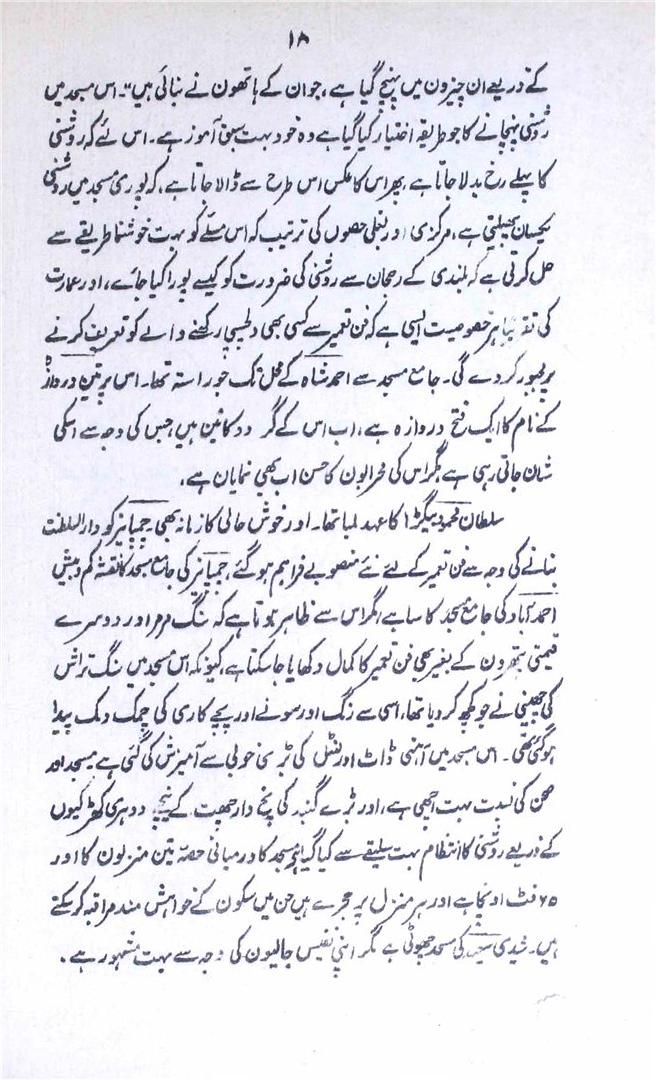 ۱۸
کے ذریعے ان چیزون میں پہنچ گیا ہے، جو ان کے ہاتھون نے بنائی ہیں"۔ اس مسجد میں
روشنی پہنچانے کا جو طریقہ اختیار کیا گیا ہے وہ خود بہت سبق آموز ہے۔ اس لئے کہ روشنی
کا پہلے رخ بدلا جاتا ہے، پھر اس کا عکس اس طرح سے ڈالا جاتا ہے، کہ پوری مسجد میں روشنی
یکسان پھیلتی ہے، مرکزی اور بغلی حصوں کی ترتیب کہ اس مسلے کو بہت خوشنما طریقے سے
حل کرتی ہے کہ بلندی کے رحجان سے روشنی کی ضرورت کو کیسے پورا کیا جائے، اور عمارت
کی تقریباً ہر خصوصیت ایسی ہے کہ فن تعمیر سے کسی بھی دلچسپی رکھنے والے کو تعریف کرنے
پر مجبور کر دے گی۔ جامع مسجد سے احمد شاہ کے محل تک جو راستہ تھا۔ اس پر تین دروازہ
کے نام کا ایک فتح دروازہ ہے، اب اس کے گرد دکانین ہیں جس کی وجہ سے اسکی
شان جاتی رہی ہے مگر اس کی محرابون کا حسن اب بھی نمایان ہے۔
سلطان محمود بیگڑا کا عہد لمبا تھا۔ اور خوش حالی کا زمانہ بھی۔ چمپانیر کو دارالسلطنت
بنانے کی وجہ سے فن تعمیر کے لئے نئے منصوبے فراہم ہو گئے، چمپانیر کی جامع مسجد کا نقشہ کم و بیش
احمدآباد کی جامع مسجد کا سا ہے، مگر اس سے ظاہر ہوتا ہے کہ سنگ مرمر اور دوسرے
قیمتی پتھرون کے بغیر بھی فن تعمیر کا کمال دکھایا جا سکتا ہے، کیونکہ اس مسجد میں سنگ تراش
کی چھینی نے جو کچھ کر دیا تھا، اسی سے رنگ اور سونے اور پچے کاری کی چمک دمک پیدا
ہو گئی تھی۔ اس مسجد میں آہنی ڈاٹ اور نٹل کی بڑی خوبی سے آمیزش کی گئی ہے، مسجد اور
صحن کی نسبت بہت اچھی ہے، اور بڑے گنبد کی پنج دار چھت کے نیچے دوہری کھڑکیوں
کے ذریعے روشنی کا انتظام بہت سلیقے سے کیا گیا ہے۔ مسجد کا درمیانی حصہ تین منزلون کا اور
۶۵ فٹ اونچا ہے اور ہر منزل پر حجرے ہیں جن میں سکون کے خواہش مند مراقبہ کر سکتے
ہیں۔ شیدی سعید کی مسجد چھوٹی ہے مگر اپنی نفیس جالیون کی وجہ سے بہت مشہور ہے۔